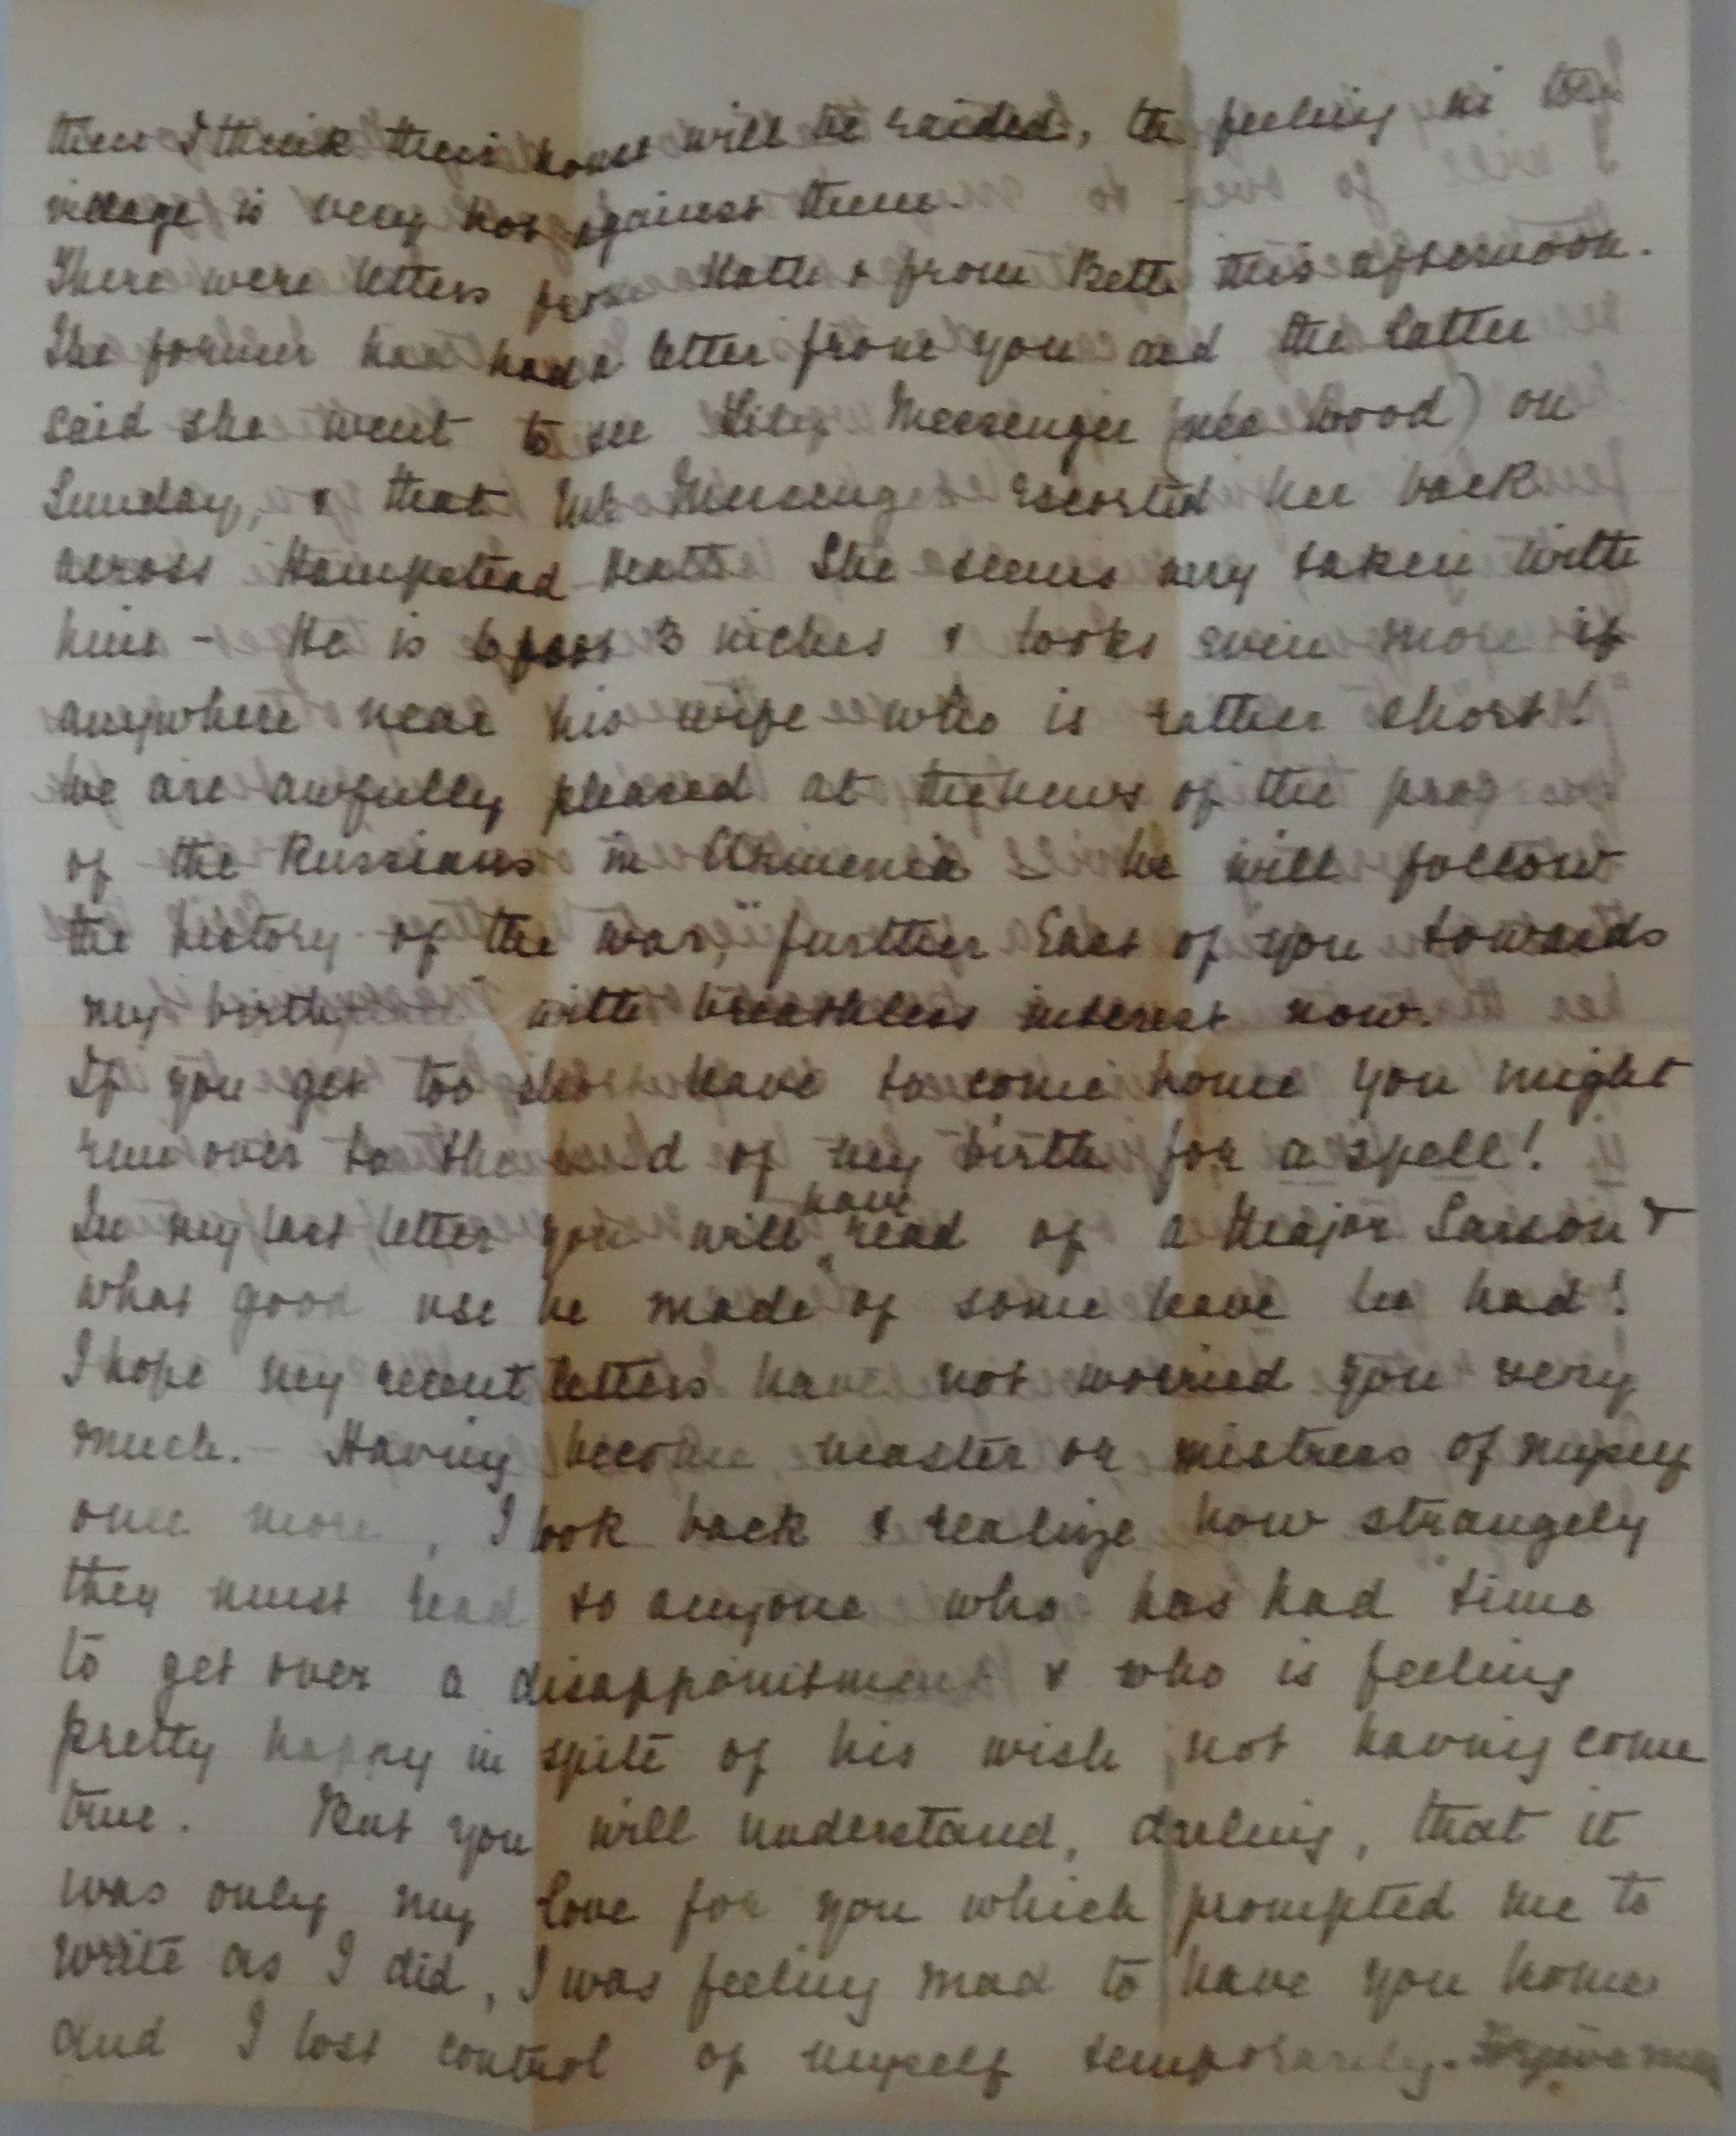 them I think their house will be raided, the feeling in the
village is very hot against them.
There were letters from & from Betty this afternoon.
The former has had a letter from you and the latter
said she went to see Lily Messenger (née Wood) on
Sunday, & that Mr Messenger escorted her back
across Hampstead Heath. She seems very taken with
him - He is 6 foot 3 inches & looks even more if
anywhere near his wife who is rather short!
We are awfully pleased at the news of the prog
of the Russians in Armenia We will follow
the history of the war, "further East of you towards
my birth " with breathless interest now.
If you get too short leave to come home you might
run over to the land of my birth for a spell!
In my last letter you will have read of a Major Sarson &
what good use he made of some leave he had!
I hope my recent letters have not worried you very
much. - Having become master or mistress of myself
once more, I look back & realize how strangely
they must read to anyone who has had time
to get over a disappointment & who is feeling
pretty happy in spite of his wish not having come
true. But you will understand, darling, that it
was only my love for you which prompted me to
write as I did, I was feeling mad to have you home
and I lost control of myself temporarily. Forgive me